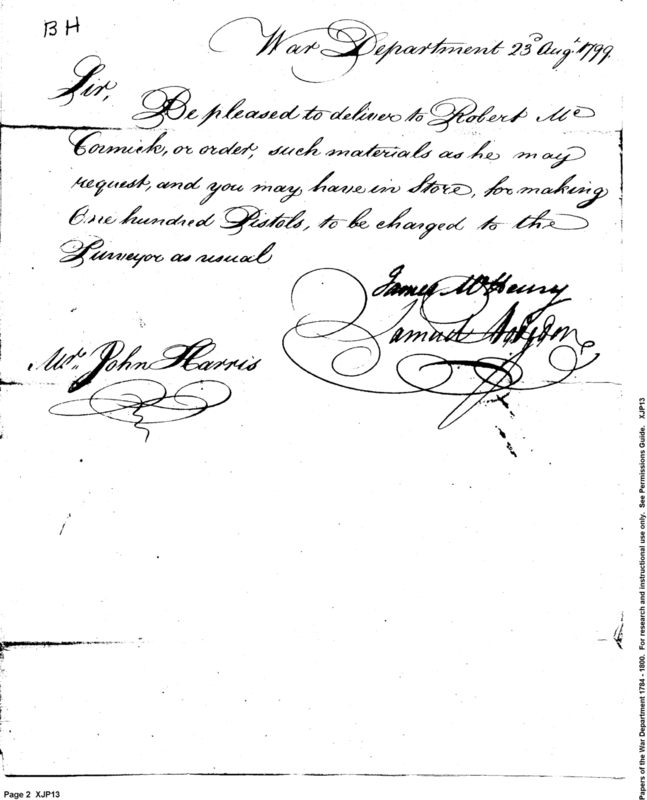 BH
War Department 23d Augt. 1799.
Sir,
Be pleased to deliver to Robert Mc
Cormick, or order, such materials as he may
request, and you may have in Store, for making
One hundred Pistols, to be charged to the
Surveyor as usual
James McHenry
Samuel Hodgdon
Mr. John Harris
Page 2 XJP13
Papers of the War Department 1784 - 1800. For research and instructional use only. See Permissions Guide. XJP13